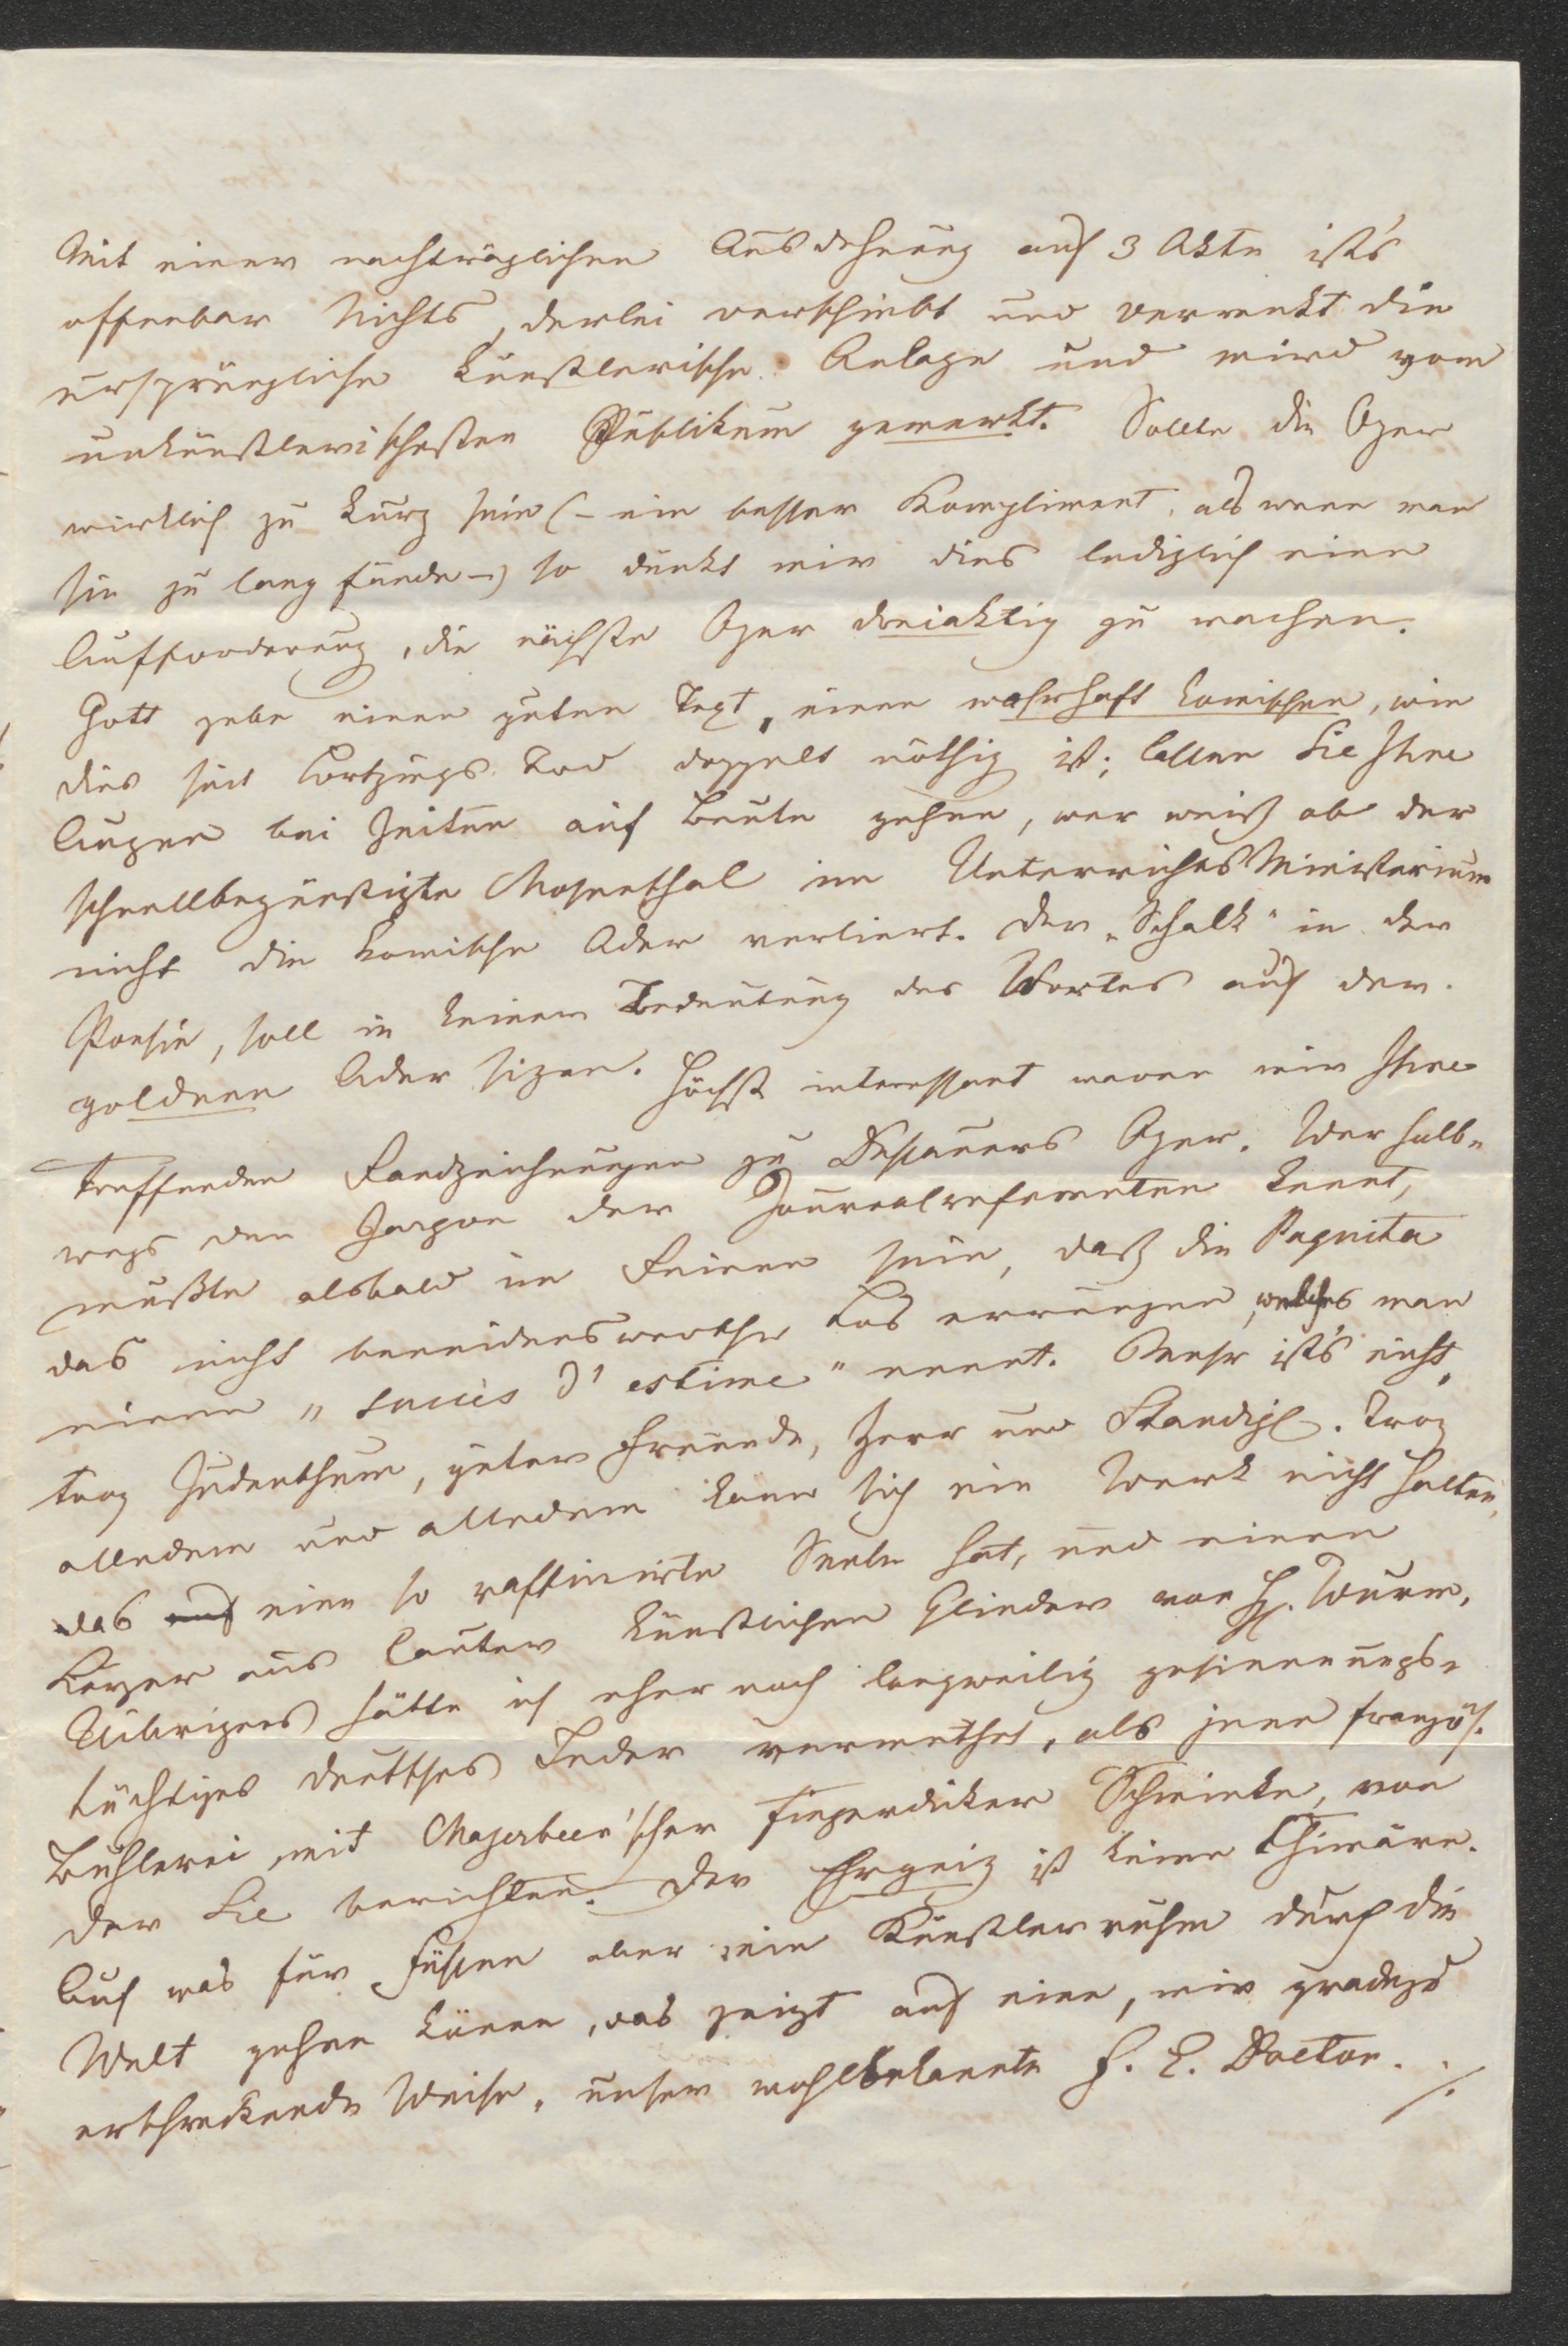 Mit einer nachträglichen Ausdehnung auf 3 Akte ist's
offenbar Nichts, derlei verschiebt und verrenkt die
ursprüngliche künstlerische Anlage und wird vom
unkünstlerischesten Publikum gemerkt. Sollte die Oper
wirklich zu kurz sein (– ein besser Kompliment, als wenn man
sie zu lang fände –) so dünkt mir dies lediglich eine
Aufforderung, die nächste Oper dreiaktig zu machen.
Gott gebe einen guten Text, einen wahrhaft komischen, wie
dies seit Lortzings Tod doppelt nöthig ist; lassen Sie Ihre
Augen bei Zeiten auf Beute gehen, wer weiß ob der
schnellbegünstigte Mosenthal im UnterrichtsMinisterium
nicht die komische Ader verliert. Der „Schalk" in der
Poesie, soll in keiner Bedeutung des Wortes auf der
goldnen Ader sizen. Höchst interessant waren mir Ihre
treffenden Randzeichnungen zu Dessauers Oper. Wer halb-
wegs den Jargon der Journalreferenten kennt,
mußte alsbald im Reinen sein, daß die Paquita
das nicht beneidenswerthe Los errungen, welches man
einen „succès d'estime" nennt. Mehr ist's nicht,
troz Judenthum, guter Freunde, Zerr und Staudigl. Troz
alledem und alledem kann sich ein Werk nicht halten,
das eine so raffinirte Seele hat, und einen
Körper aus lauter künstlichen Glieder von H. Wurm.
Uibrigens hätte ich eher noch langweilig gesinnungs-
tüchtiges deutsches Leder vermuthet, als jene französ.
Buhlerei mit Mayerbeer'scher fingerdicker Schminke, von
der Sie berichten. Der Ehrgeiz ist keine Chimäre.
Auf was für Füssen aber ein Künstlerruhm durch die
Welt gehen könne, das zeigt auf eine, mir gradezu
erschreckende Weise, unser wohlbekannte F. E. Doctor. ./.